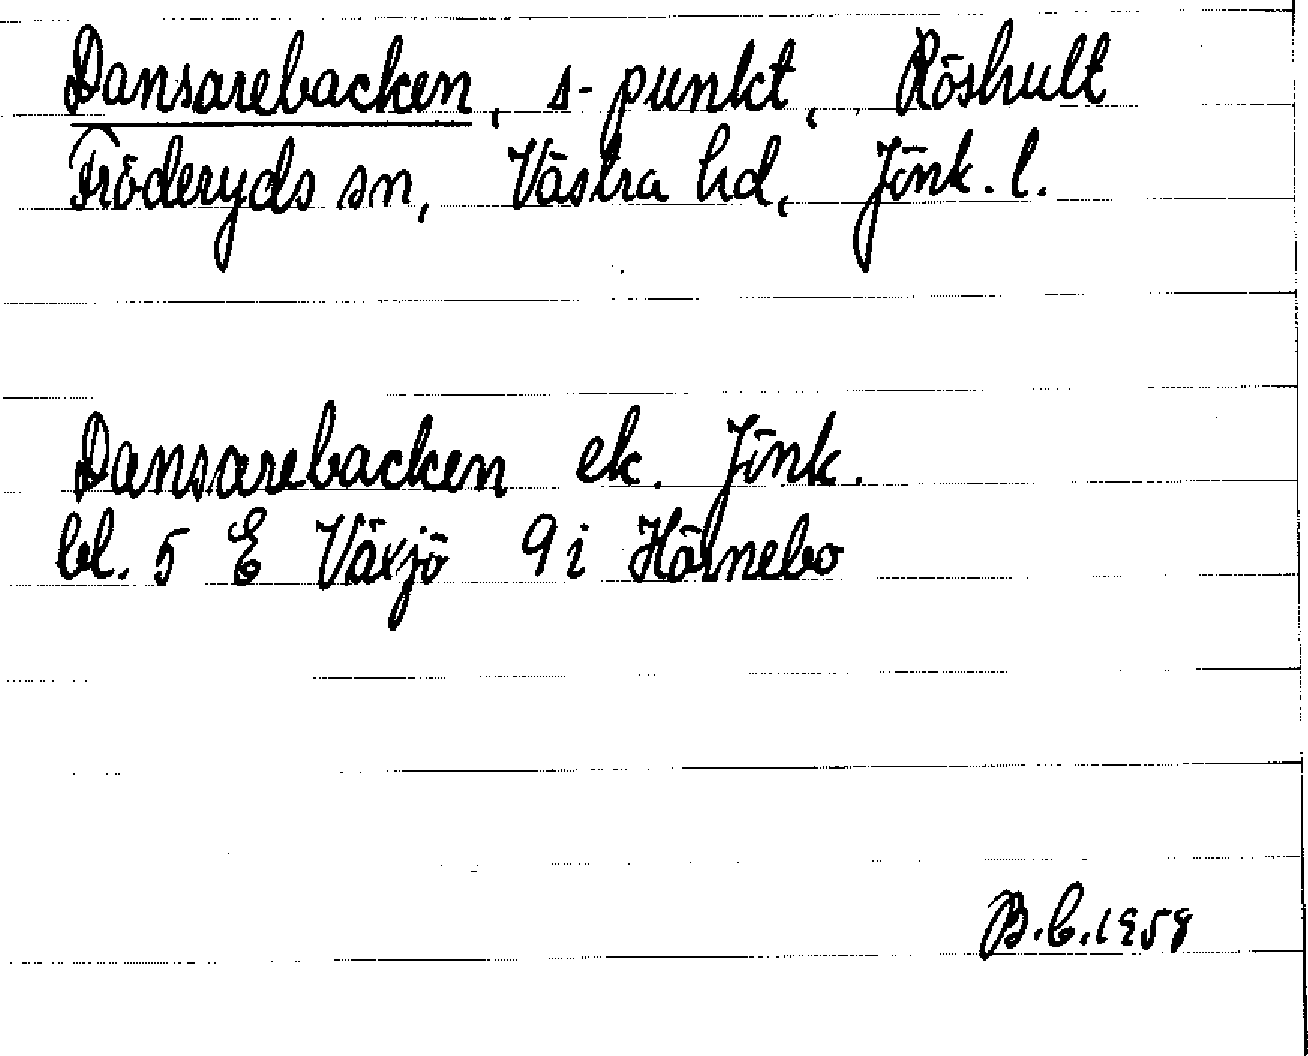 Dansarebacken, s-punkt, Röshult
Fröderyds sn, Västra hd, Jönk. l.
Dansarebacken ek. Jönk.
bl. 5 E Växjö 9 i Hörnebo
B.C. 1958